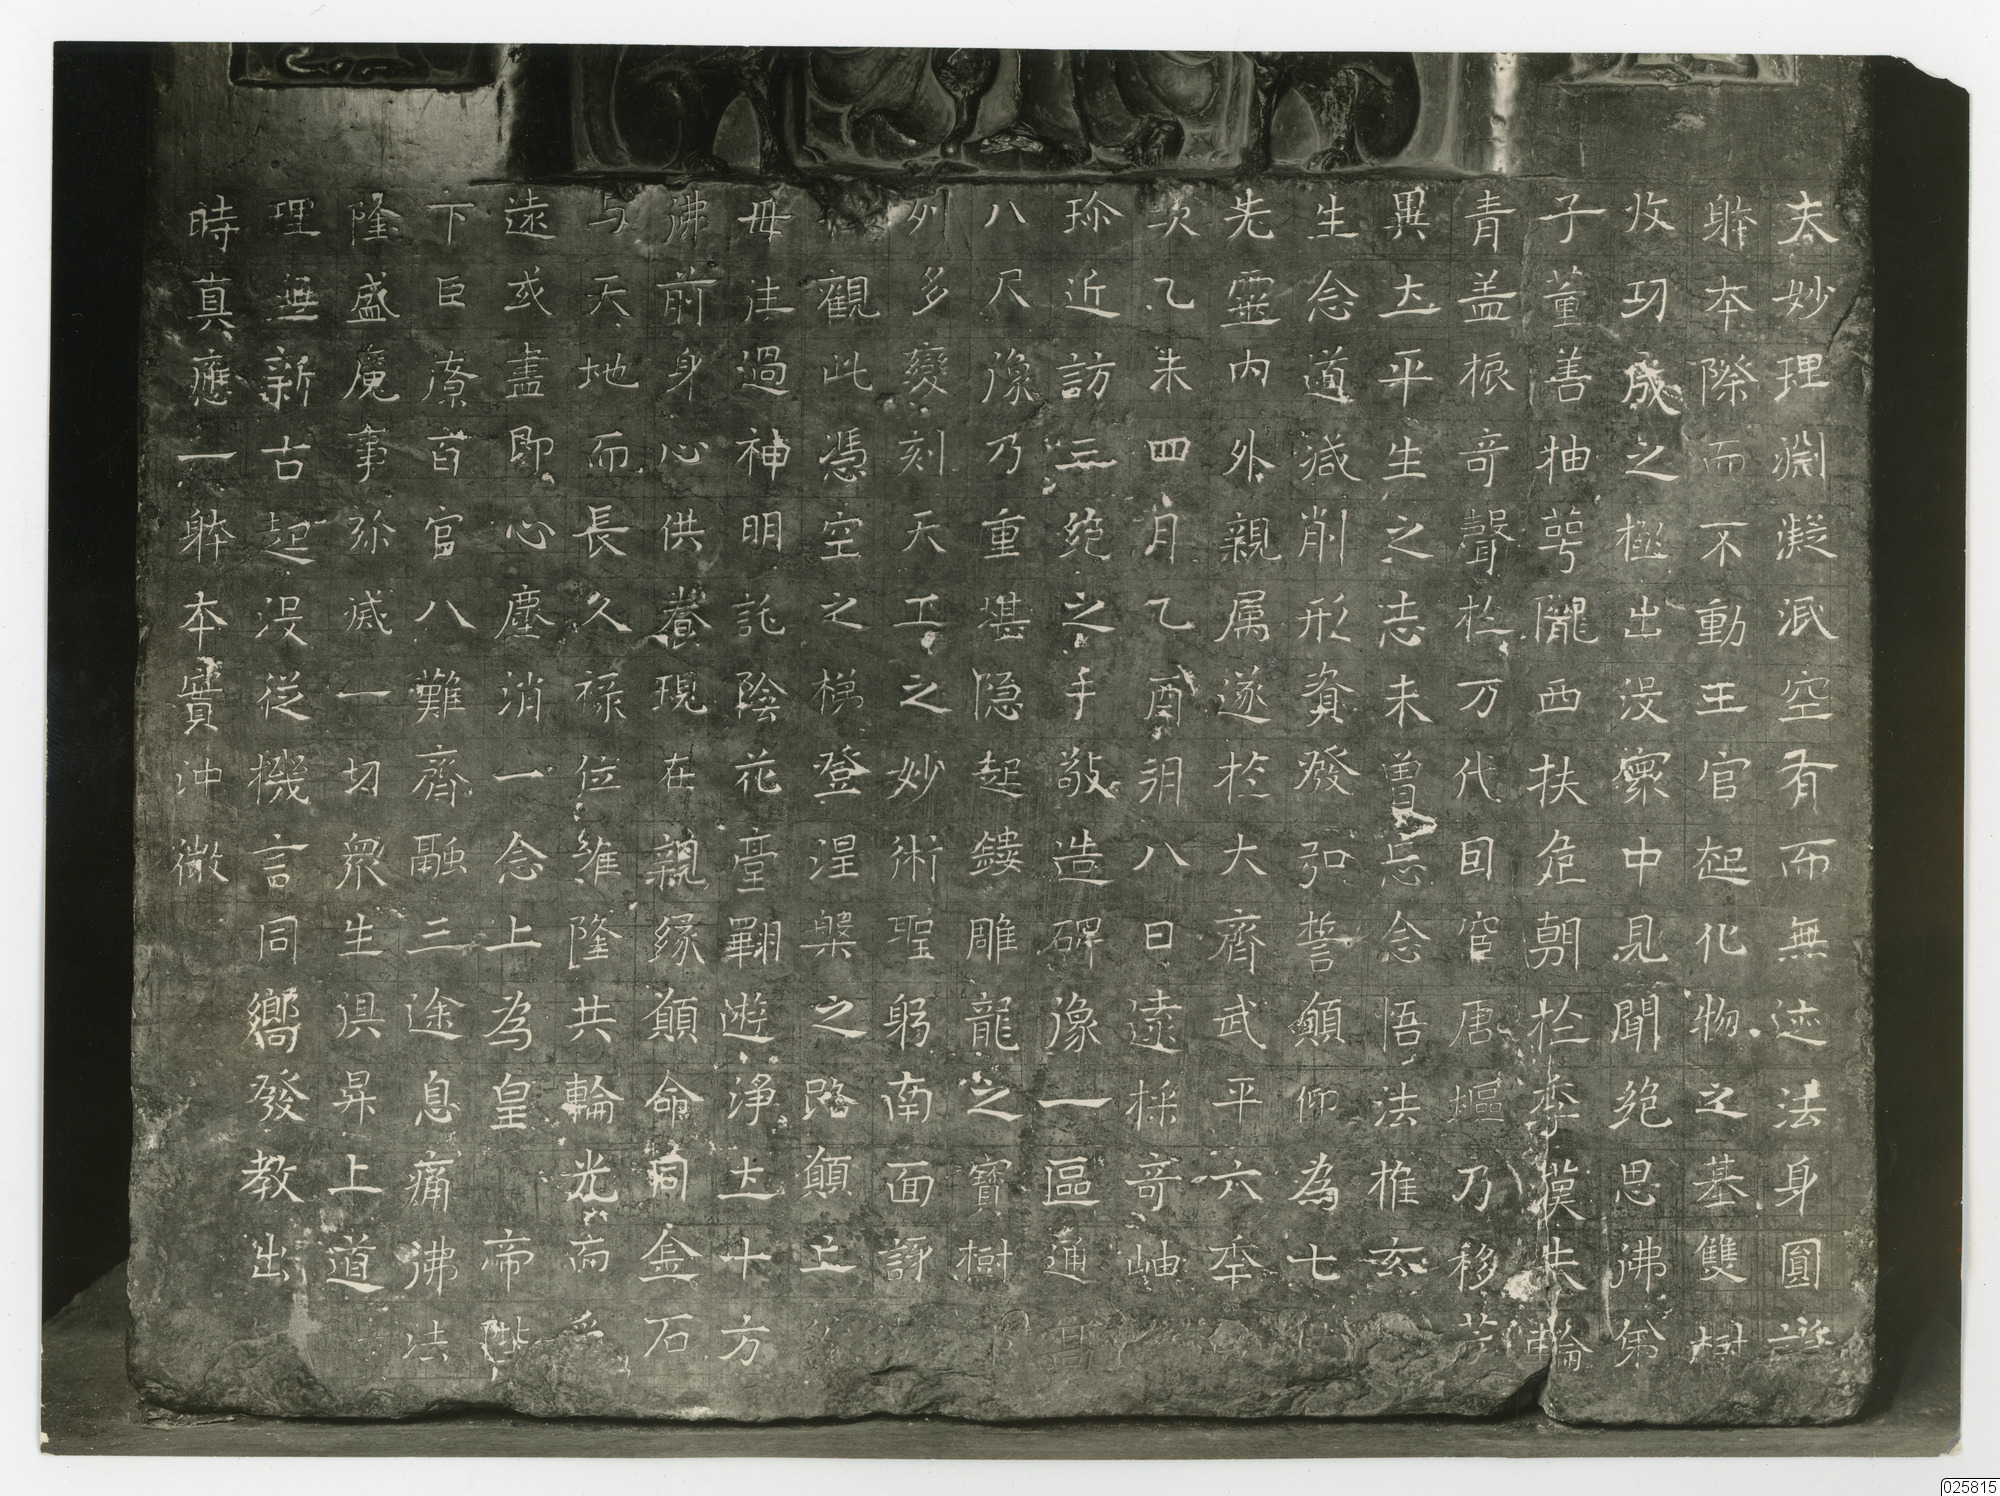 夫妙理淵凝派空有而無迹法身圓證
躰夲際而不動王宮起化物之基雙樹
收功成之極出没寰中見聞絶思佛弟
子董善抽萼隴西扶危朝扵季漢朱輪
青盖振奇聲扵万代回宦唐嫗乃移
異土平生之志未曽忘念悟法推玄
生念道減削形資發弘誓願仰為七
先靈内外親属遂扵大齊武平六年
次乙未四月乙酉朔八日遠採奇岫
珎近訪三绝之手敬造碑像一區通高
八尺像乃重堪隠起鏤雕龍之寶樹
列多變刻天工之妙術聖躬南面訝
觀此憑空之梯登涅槃之路願亡
毋注過神明託陰花臺翱遊浄土十方
佛前身心供養現在親縁願命同金石
与天地而長久禄位維隆共輪光而
遠或盡即心塵消一念上為皇帝陛
下臣寮百官八難齊融三途息痛佛法
隆盛魔事弥滅一切衆生俱昇上道
理無新古起没從機言同嚮發教出
時真應一躰夲實沖微
025815